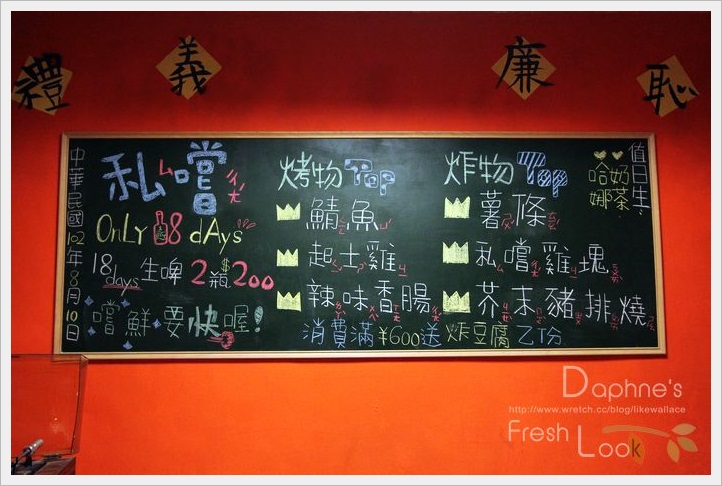 禮 義 廉 恥
中華民國102年8月10日
私嚐
OnLY 18 dAys
18days生啤2瓶$200
嚐鮮要快喔!
烤物Top
鯖魚
起士雞
辣味香腸
炸物Top
薯條
私嚐雞塊
芥末豬排燒
消費滿¥600送炸豆腐乙份
值日生:
哈奶
娜茶
Daphne's
http://www.wretch.cc/blog/likewallace
Fresh Look